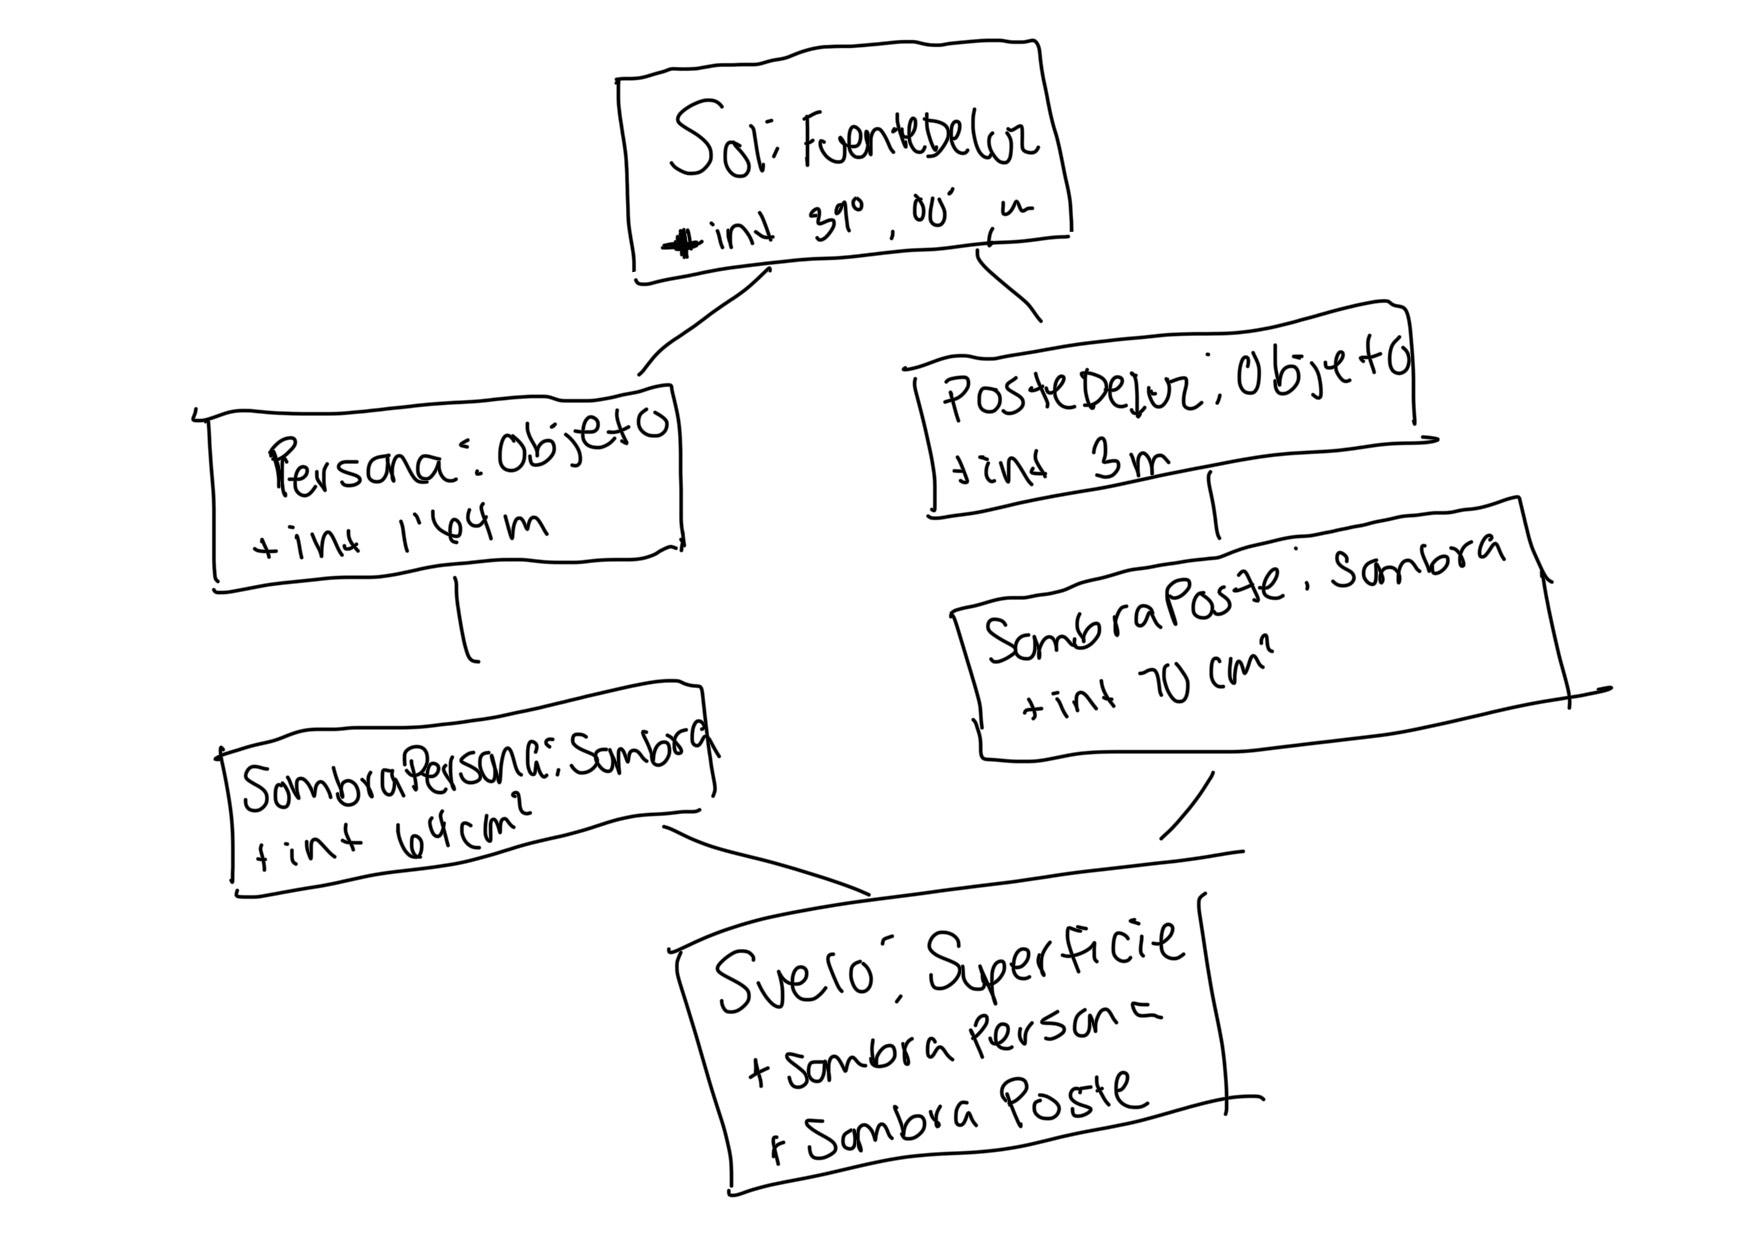 Sol: FuenteDeLuz
+ int 39°, 00'
Persona: Objeto
+ int 1'64m
PosteDeLuz: Objeto
+ int 3m
SombraPoste: Sombra
+ int 70 cm²
SombraPersona: Sombra
+ int 64cm²
Suelo: Superficie
+ Sombra Persona
+ Sombra Poste